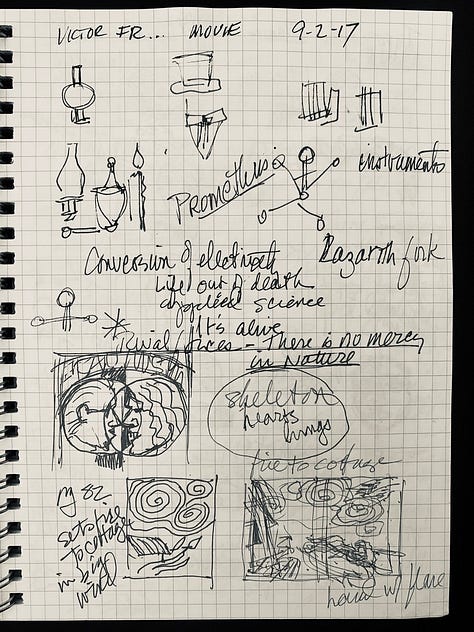 VICTOR FR... MOVIE 9-2-17
instruments
PROMETHUS
Lazaroth fork
Conversion of electricity
Life out of death
applied science
It's alive
Rival forces - There is no mercy
in NATURE
skeleton
hearts
lungs
fire to cottage
pg 82
sets fire
to cottage
in big
wind
house w/ flare